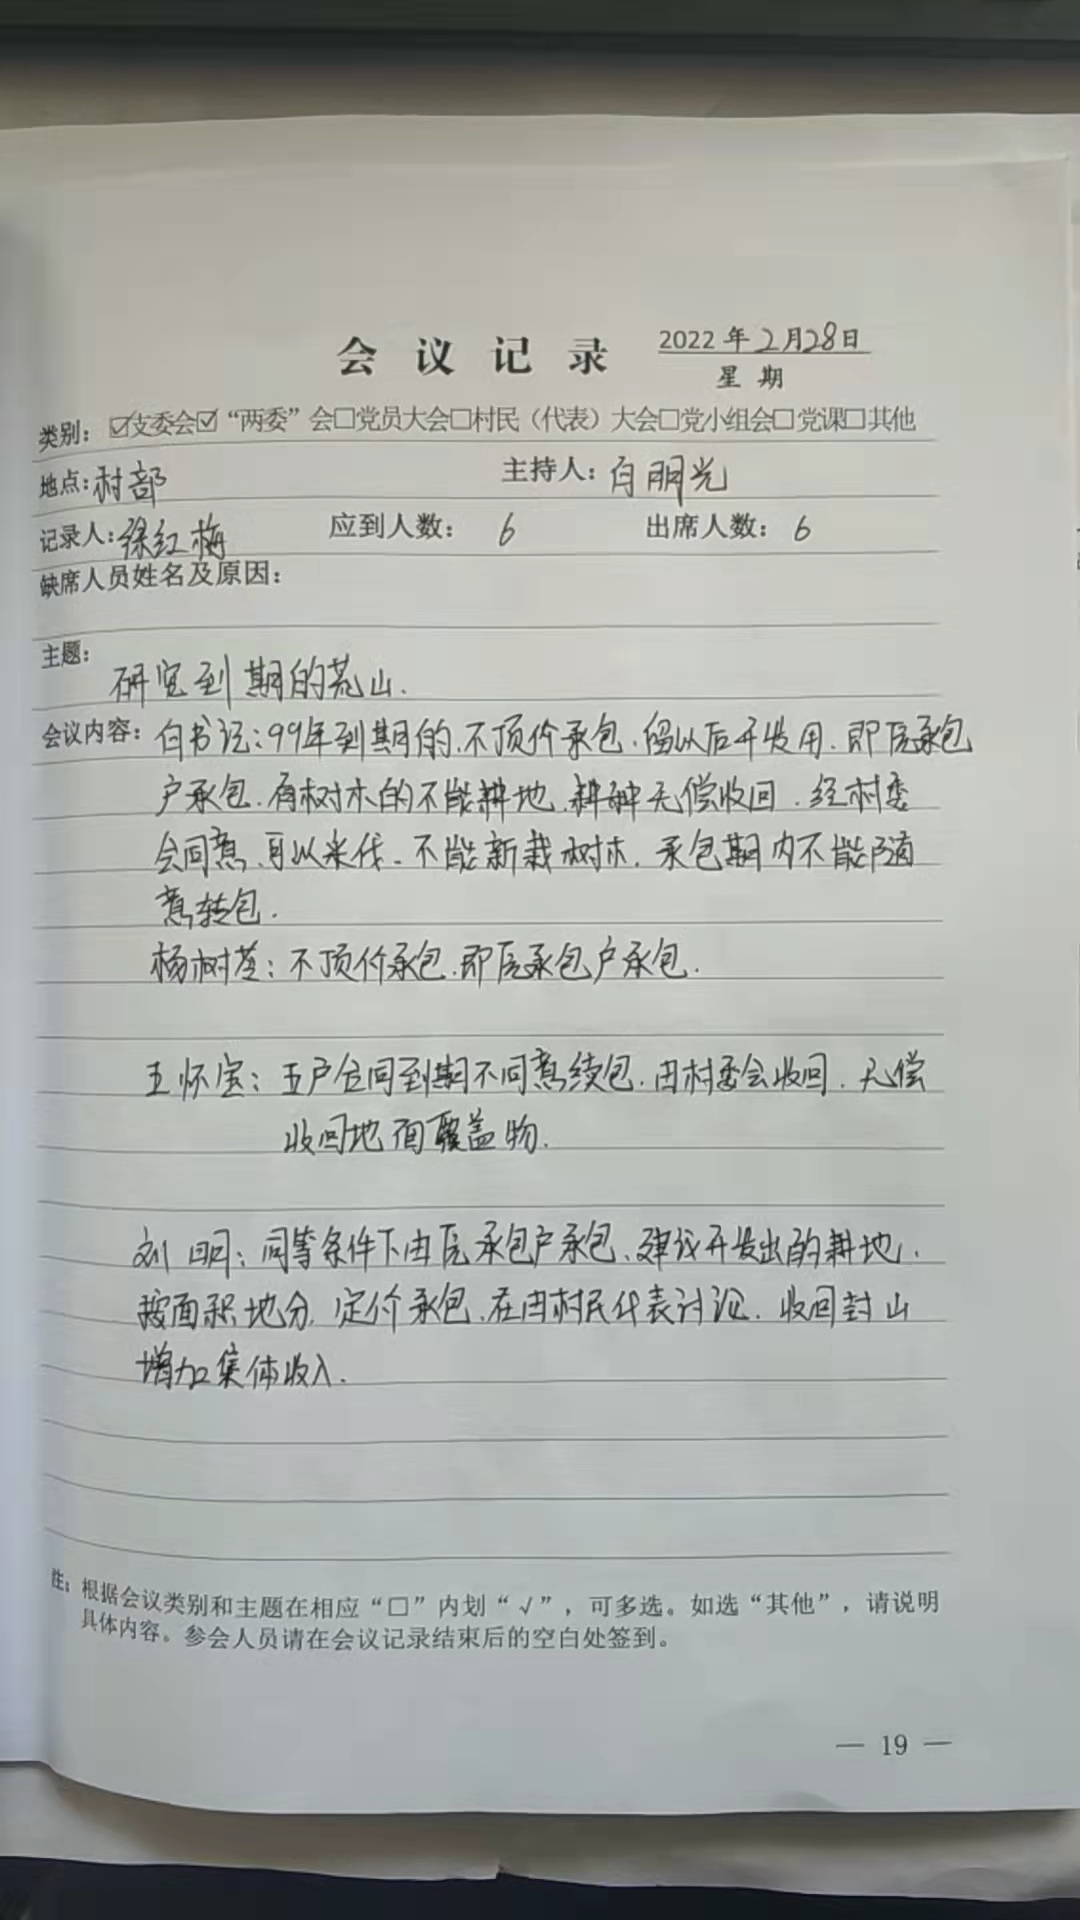 会议记录 2022年2月28日
星期
类别：☑支委会☑“两委”会□党员大会□村民（代表）大会□党小组会□党课□其他
地点：村部 主持人：白明光
记录人：徐红梅 应到人数：6 出席人数：6
缺席人员姓名及原因：
主题：
研究到期的荒山.
会议内容：白书记：99年到期的.不顶价承包.留以后开发用.即原承包
户承包.有树木的不能耕地.耕种无偿收回.经村委
会同意.可以采伐.不能新栽树木.承包期内不能随
意转包.
杨树：不顶价承包.即原承包户承包.
王怀宝：五户合同到期不同意续包.由村委会收回.无偿
收回地面覆盖物.
刘明：同等条件下由原承包户承包.建议开发出的耕地.
按面积地分.定价承包.在由村民代表讨论.收回封山
增加集体收入.
注：根据会议类别和主题在相应“□”内划“√”，可多选。如选“其他”，请说明
具体内容。参会人员请在会议记录结束后的空白处签到。
— 19 —